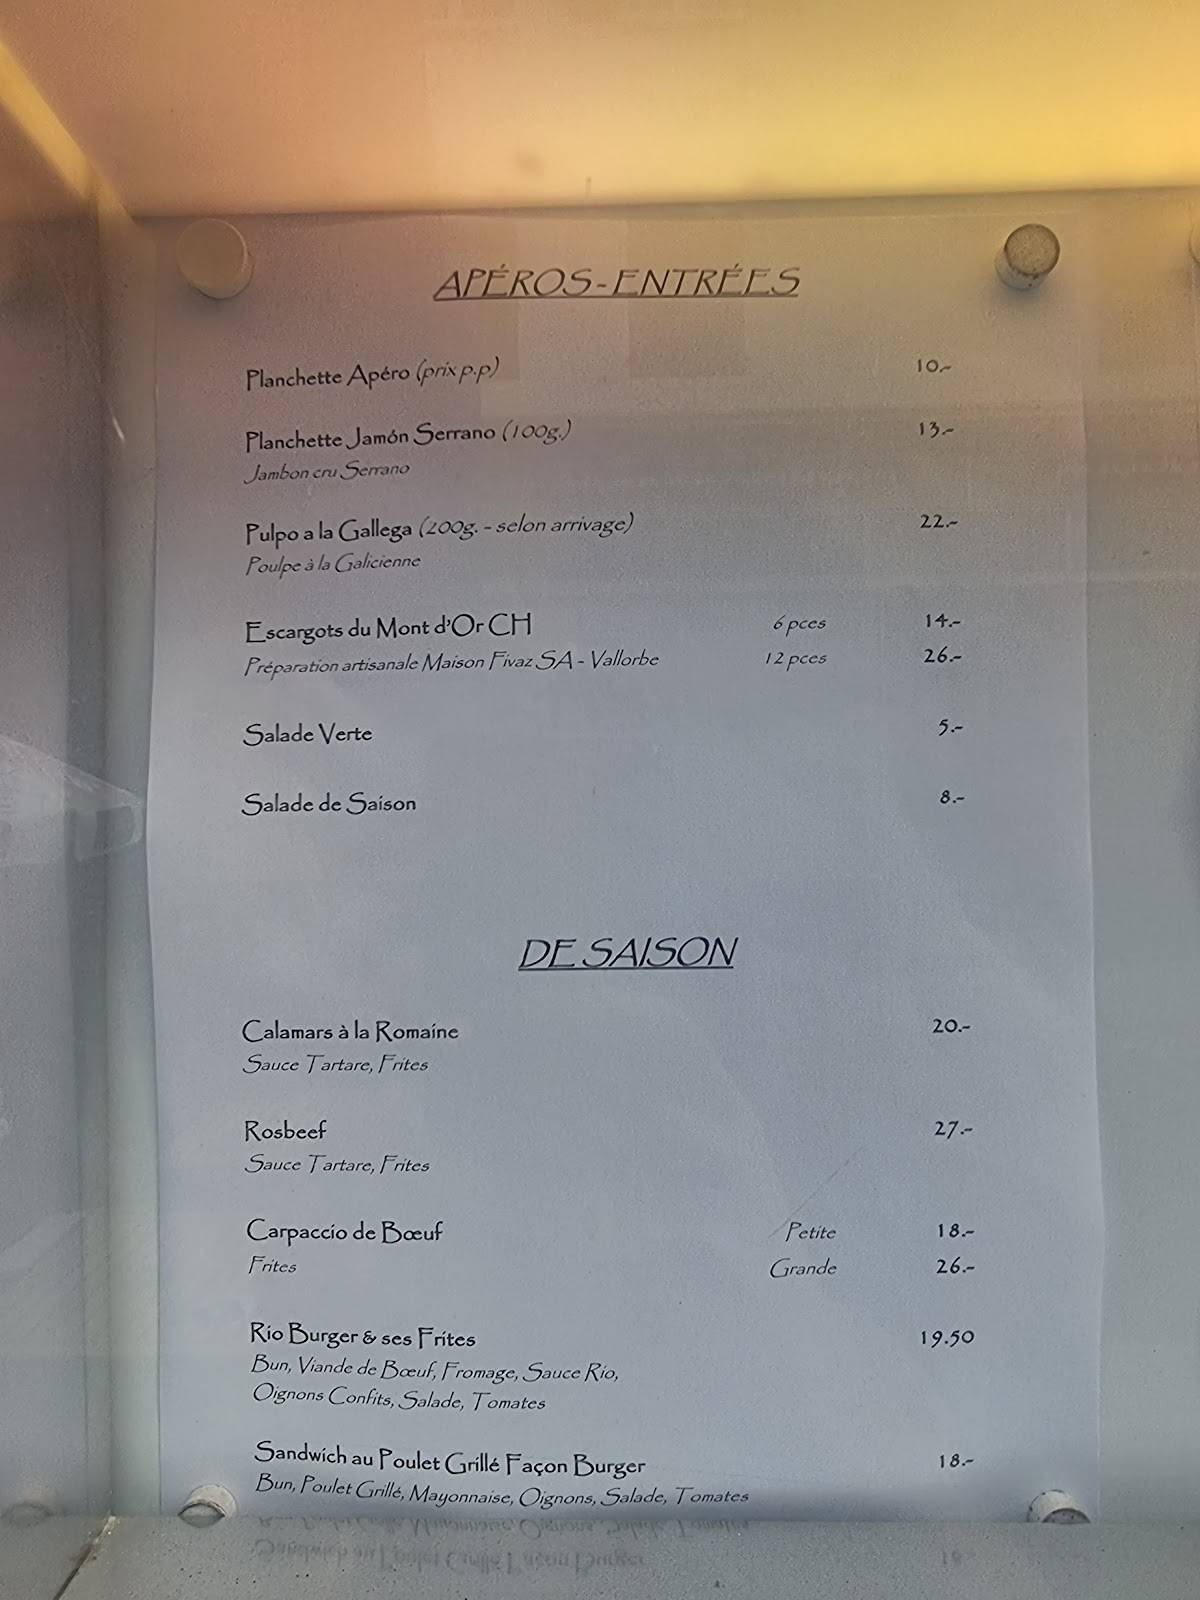 APÉROS-ENTRÉES
Planchette Apéro (prix p.p) 10.-
Planchette Jamón Serrano (100g.) 13.-
Jambon cru Serrano
Pulpo a la Gallega (200g. - selon arrivage) 22.-
Poulpe à la Galicienne
Escargots du Mont d'Or CH 6 pces 14.-
Préparation artisanale Maison Fivaz SA - Vallorbe 12 pces 26.-
Salade Verte 5.-
Salade de Saison 8.-
DE SAISON
Calamars à la Romaine 20.-
Sauce Tartare, Frites
Rosbeef 27.-
Sauce Tartare, Frites
Carpaccio de Bœuf Petite 18.-
Frites Grande 26.-
Rio Burger & ses Frites 19.50
Bun, Viande de Bœuf, Fromage, Sauce Rio,
Oignons Confits, Salade, Tomates
Sandwich au Poulet Grillé Façon Burger 18.-
Bun, Poulet Grillé, Mayonnaise, Oignons, Salade, Tomates